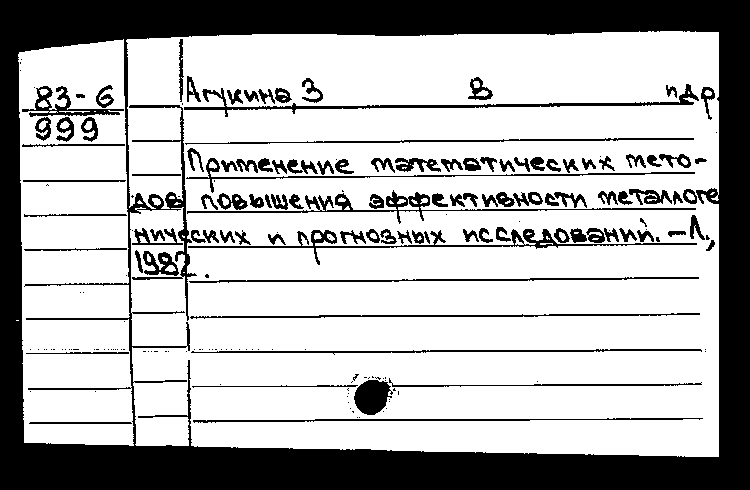 83-6
999
Агукина, З В и др.
Применение математических мето-
дов повышения эффективности металлоге
нических и прогнозных исследований. — Л.,
1982.